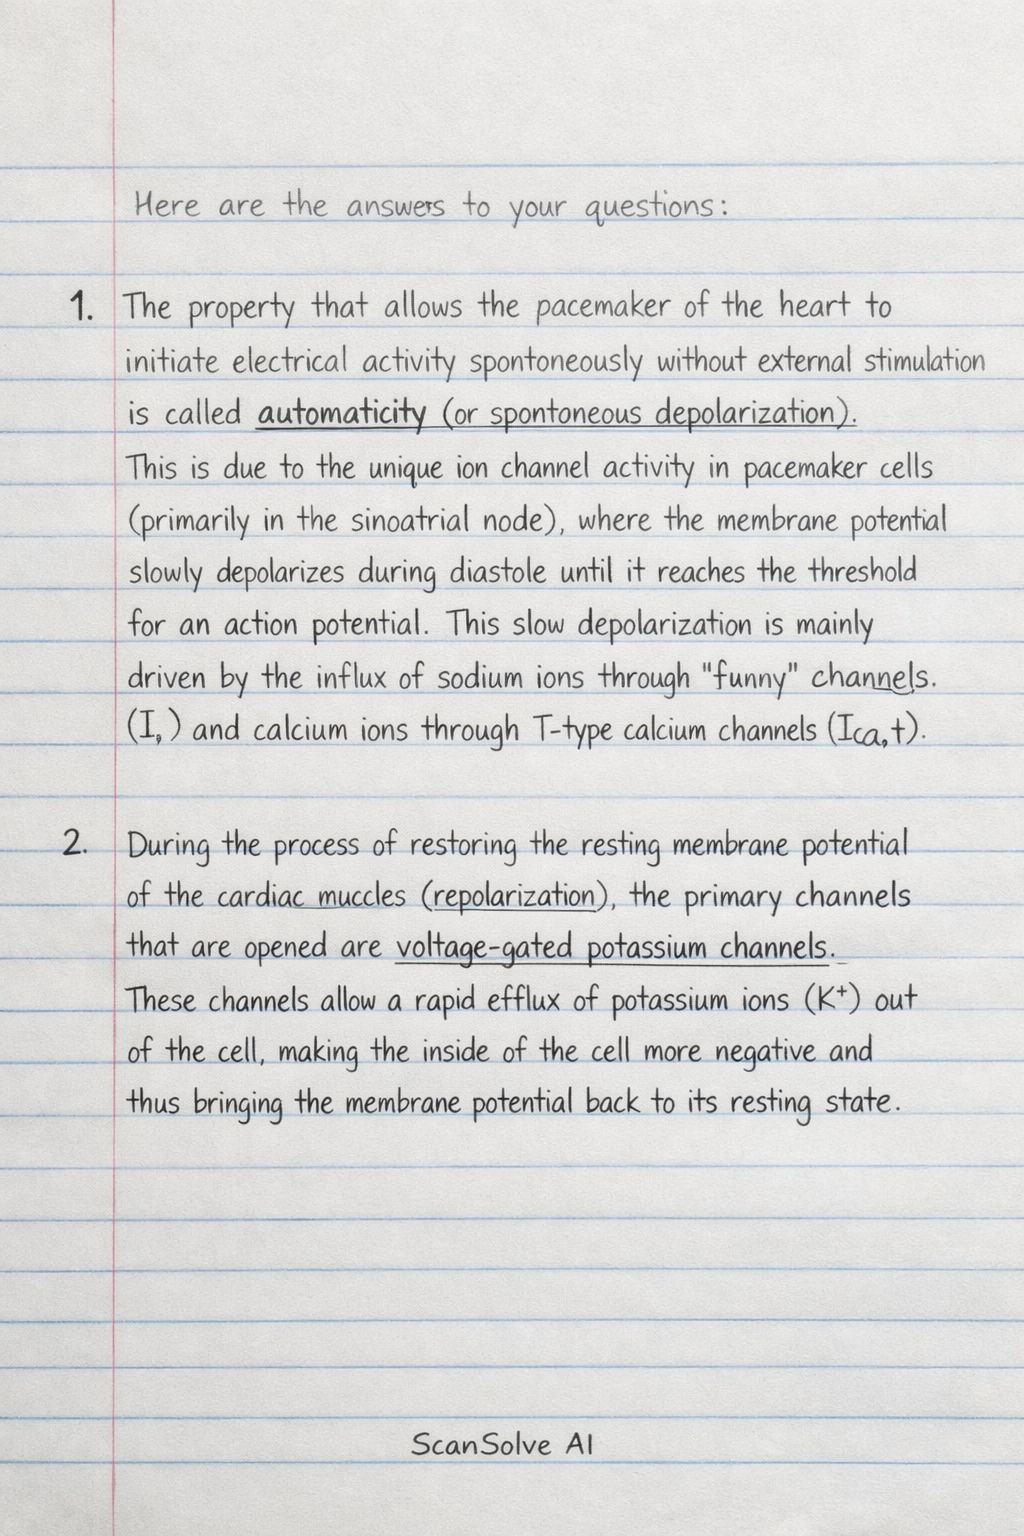 Here are the answers to your questions:
1. The property that allows the pacemaker of the heart to
initiate electrical activity spontoneously without external stimulation
is called automaticity (or spontaneous depolarization).
This is due to the unique ion channel activity in pacemaker cells
(primarily in the sinoatrial node), where the membrane potential
slowly depolarizes during diastole until it reaches the threshold
for an action potential. This slow depolarization is mainly
driven by the influx of sodium ions through "funny" channels.
(I,) and calcium ions through T-type calcium channels (Ica,t).
2. During the process of restoring the resting membrane potential
of the cardiac muccles (repolarization), the primary channels
that are opened are voltage-gated potassium channels.
These channels allow a rapid efflux of potassium ions (K⁺) out
of the cell, making the inside of the cell more negative and
thus bringing the membrane potential back to its resting state.
ScanSolve AI